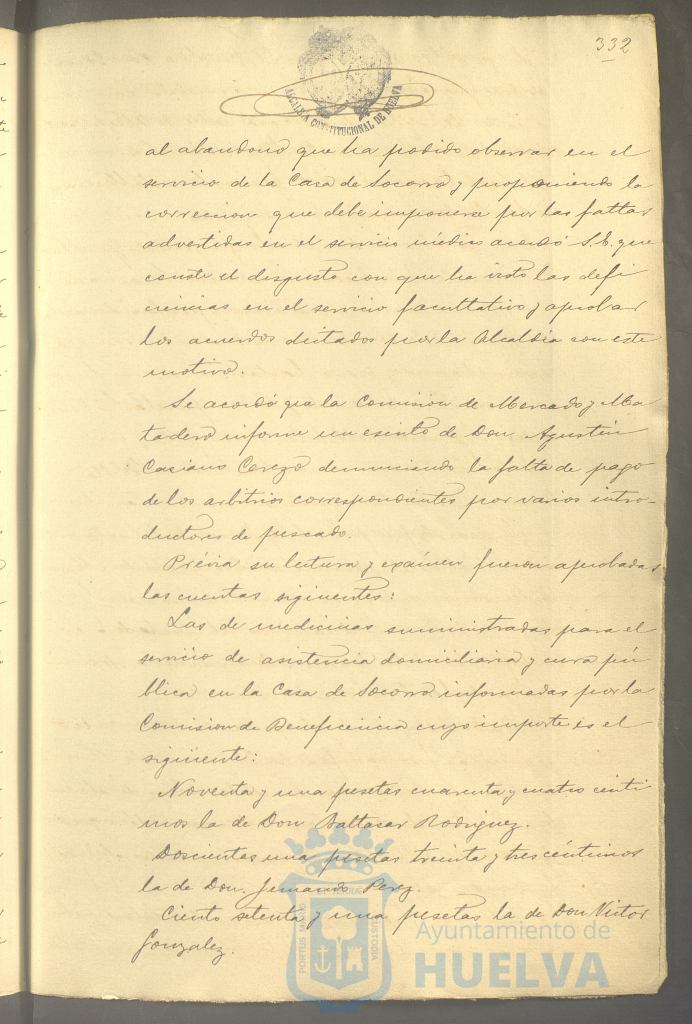 332
ALCALDIA CONSTITUCIONAL DE HUELVA
al abandono que ha podido observar en el
servicio de la Casa de Socorro y proponiendo la
correccion que debe imponerse por las faltas
advertidas en el servicio médico acordó S.E. que
conste el disgusto con que ha visto las defi
ciencias en el servicio facultativo y aprobar
los acuerdos dictados por la Alcaldia con este
motivo.
Se acordó que la Comision de Mercado y Ma
tadero informe un escrito de Don Agustin
Casiano Cerezo denunciando la falta de pago
de los arbitrios correspondientes por varios intro-
ductores de pescado.
Prévia su lectura y exámen fueron aprobadas
las cuentas siguientes:
Las de medicinas suministradas para el
servicio de asistencia domiciliaria y cura pú
blica en la Casa de Socorro informadas por la
Comision de Beneficencia cuyo importe es el
sigüiente:
Noventa y una pesetas cuarenta y cuatro centi
mos la de Don Baltasar Rodriguez.
Doscientas una pesetas treinta y tres céntimos
la de Don Fernando Perez.
Ciento setenta y una pesetas la de Don Victor
Gonzalez.
PORTUS MARIS
CUSTODIA
Ayuntamiento de
HUELVA